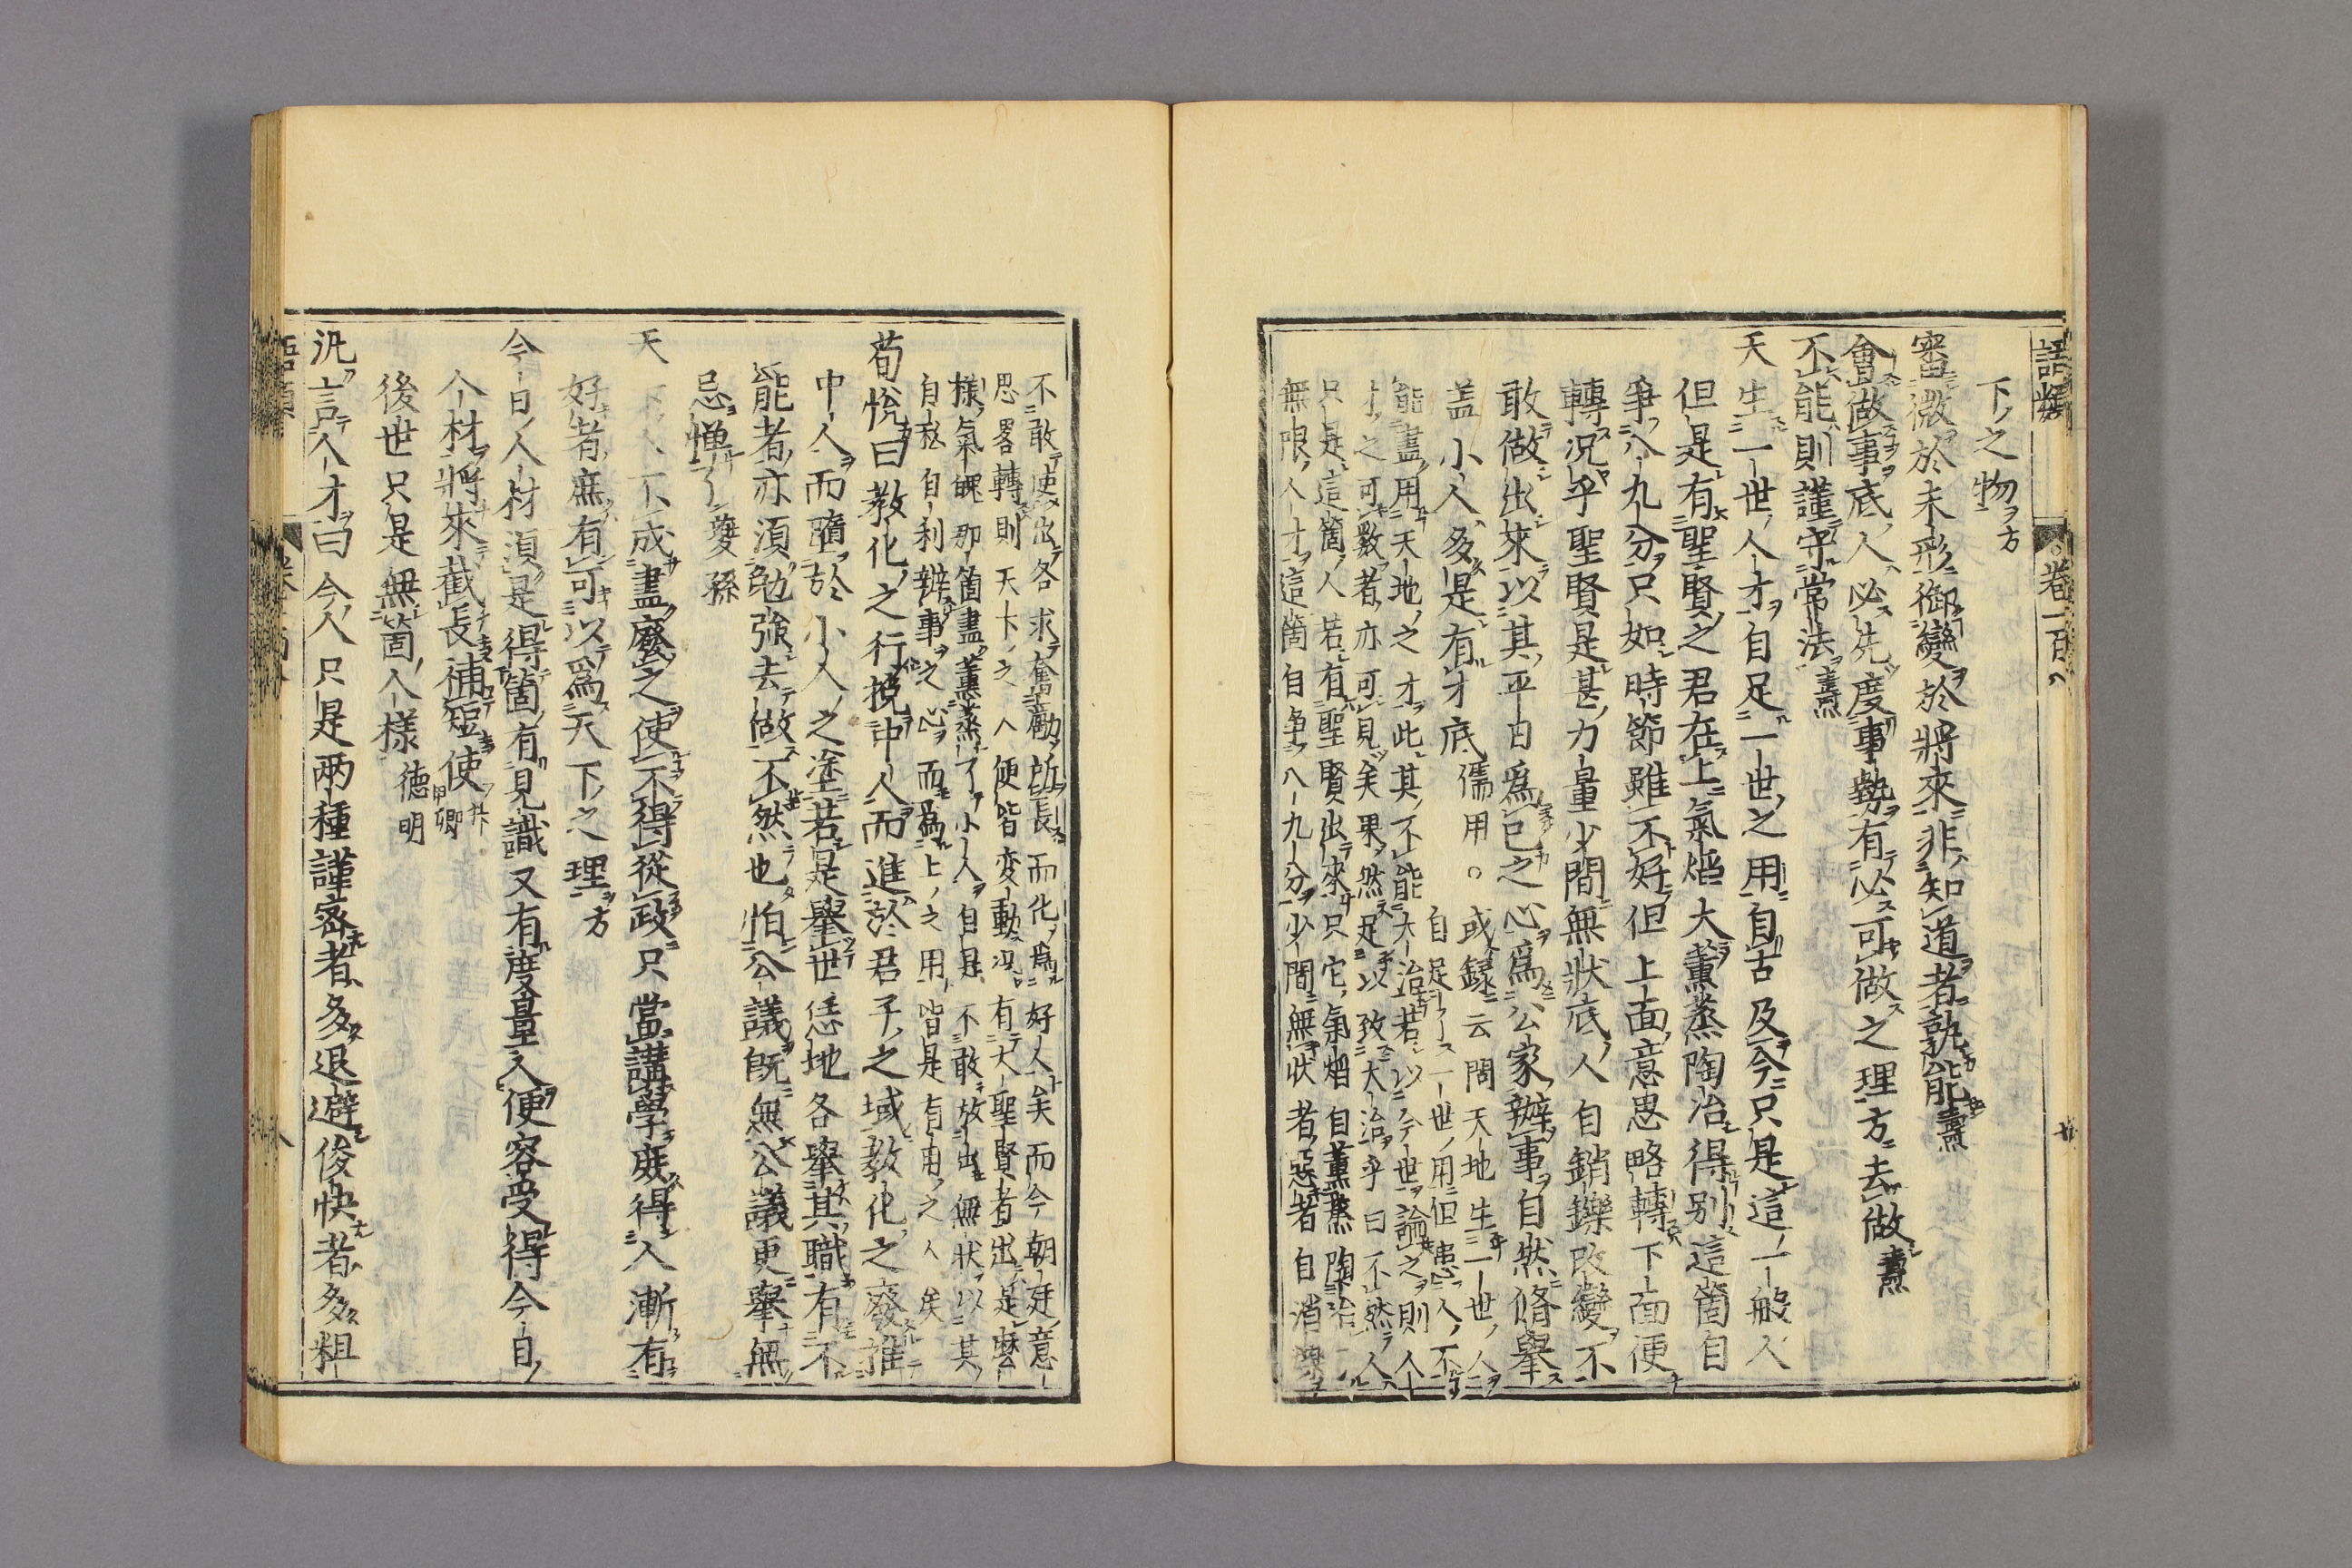 語類
卷一百八
下之物方
審微於未形御變於將來非知道者孰能燾
會做事底人必先度事勢有必可做之理方去做燾
不能則謹守常法燾
天生一世人才自足一世之用自古及今只是這一般人
但是有聖賢之君在上氣焰大薰蒸陶冶得別這箇自
爭八九分只如時節雖不好但上面意思略轉下面便
轉況乎聖賢是甚力量少間無狀底人自銷鑠改變不
敢做出來以其平日爲己之心爲公家辦事自然脩舉
盖小人多是有才底儒用。或録云問天地生一世人
自足一世用但患人不
能盡用天地之才此其不能大治若以今世論之則人
才之可數者亦可見矣果然足以致大治乎曰不然人
只是這箇人若有聖賢出來只它氣焰自薰蒸陶冶
無限人才這箇自争八九分少間無狀者惡者自消
不敢使出各求奮勵所長而化爲好人矣而今朝廷意
思畧轉則天下之人便皆変動况有大聖賢者出是麼
樣氣魄那箇盡薰蒸了小人自是不敢放出無狀以其
自私自利辦事之心而爲上之用皆是有用之人矣
荀悦曰教化之行挽中人而進於君子之域教化之廢推
中人而墮於小人之塗若是舉世恁地各舉其職有不
能者亦須勉強去做不然也怕公議旣無公議更舉無
忌憚了夔孫
天下人不成盡廢之使不得從政只當講學庶得人漸有
好者庶有可以爲天下之理方
今日人材須是得箇有見識又有度量人便容受得今日
人材將來截長補短使卿
後世只是無箇人樣德明
汎言人才曰今人只是兩種謹密者多退避俊快者多粗